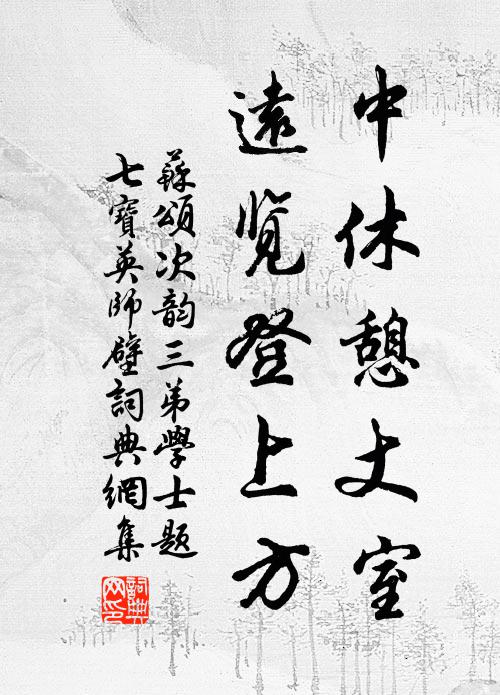 中休憩丈室
遠览登上方
蘇頌次韵三弟學士题
七寶英師壁詞典網集
詞典網印